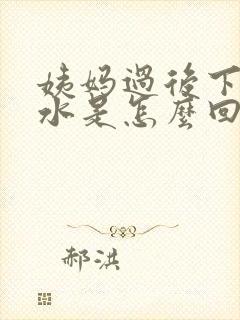 姨妈过后下
水是怎麼回
郝洪